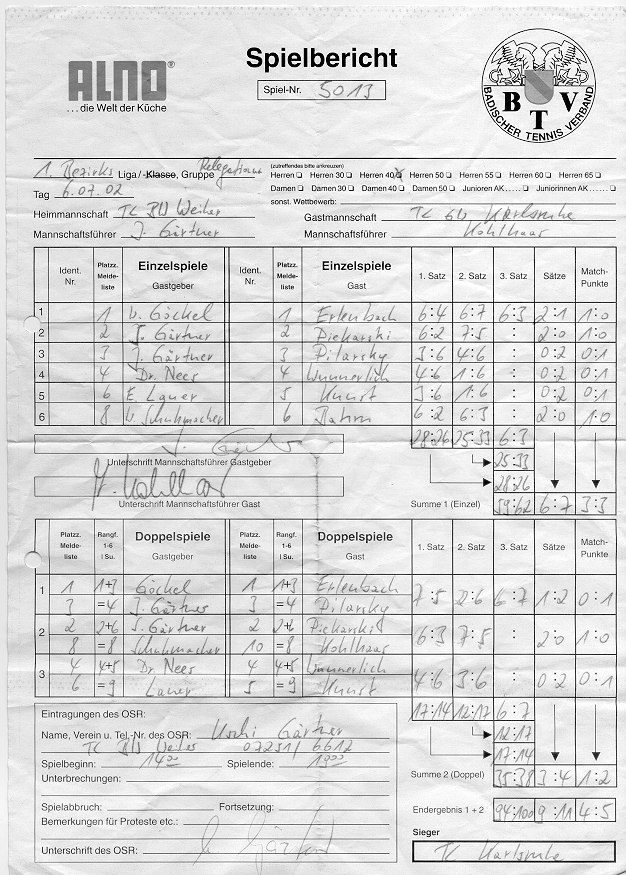 ALNO®
...die Welt der Küche
Spielbericht
Spiel-Nr. 5013
BADISCHER TENNIS VERBAND
B T V
1. Bezirks Liga/-Klasse, Gruppe Relegation
(zutreffendes bitte ankreuzen)
Herren Herren 30 Herren 40 x Herren 50 Herren 55 Herren 60 Herren 65
Tag 6.07.02
Damen Damen 30 Damen 40 Damen 50 Junioren AK...... Juniorinnen AK......
sonst. Wettbewerb:
Heimmannschaft TC BW Weiher
Gastmannschaft TC GW Karlsruhe
Mannschaftsführer J. Gärtner
Mannschaftsführer Kohlhaas
Ident. Nr. Platzz. Meldeliste Einzelspiele Gastgeber Ident. Nr. Platzz. Meldeliste Einzelspiele Gast 1. Satz 2. Satz 3. Satz Sätze Match-Punkte
1 1 U. Göckel 1 Erlenbach 6:4 6:7 6:3 2:1 1:0
2 2 S. Gärtner 2 Piekarski 6:2 7:5 : 2:0 1:0
3 3 J. Gärtner 3 Pilarsky 3:6 4:6 : 0:2 0:1
4 4 Dr. Nees 4 Wunnerlich 4:6 1:6 : 0:2 0:1
5 6 E. Lauer 5 Kunst 3:6 1:6 : 0:2 0:1
6 8 U. Schuhmacher 6 Jahn 6:2 6:3 : 2:0 1:0
28:26 25:33 6:3
Unterschrift Mannschaftsführer Gastgeber
25:33
28:26
Unterschrift Mannschaftsführer Gast
Summe 1 (Einzel) 59:62 6:7 3:3
Platzz. Meldeliste Rangf. 1-6 I Su. Doppelspiele Gastgeber Platzz. Meldeliste Rangf. 1-6 I Su. Doppelspiele Gast 1. Satz 2. Satz 3. Satz Sätze Match-Punkte
1 1 1+3 Göckel 1 1+3 Erlenbach 7:5 2:6 6:7 1:2 0:1
3 =4 J. Gärtner 3 =4 Pilarsky
2 2 2+6 S. Gärtner 2 2+6 Piekarski 6:3 7:5 : 2:0 1:0
8 =8 Schuhmacher 10 =8 Kohlhaas
3 4 4+5 Dr Nees 4 4+5 Wunnerlich 4:6 3:6 : 0:2 0:1
6 =9 Lauer 5 =9 Kunst
17:14 12:17 6:7
Eintragungen des OSR:
12:17
Name, Verein u. Tel.-Nr. des OSR: Uschi Gärtner
TC BW Weiher 07251/6612
17:14
Spielbeginn: 14 00 Spielende: 19 00
Summe 2 (Doppel) 35:38 3:4 1:2
Unterbrechungen:
Spielabbruch: Fortsetzung:
Endergebnis 1 + 2 94:100 9:11 4:5
Bemerkungen für Proteste etc.:
Sieger
Unterschrift des OSR:
TC Karlsruhe